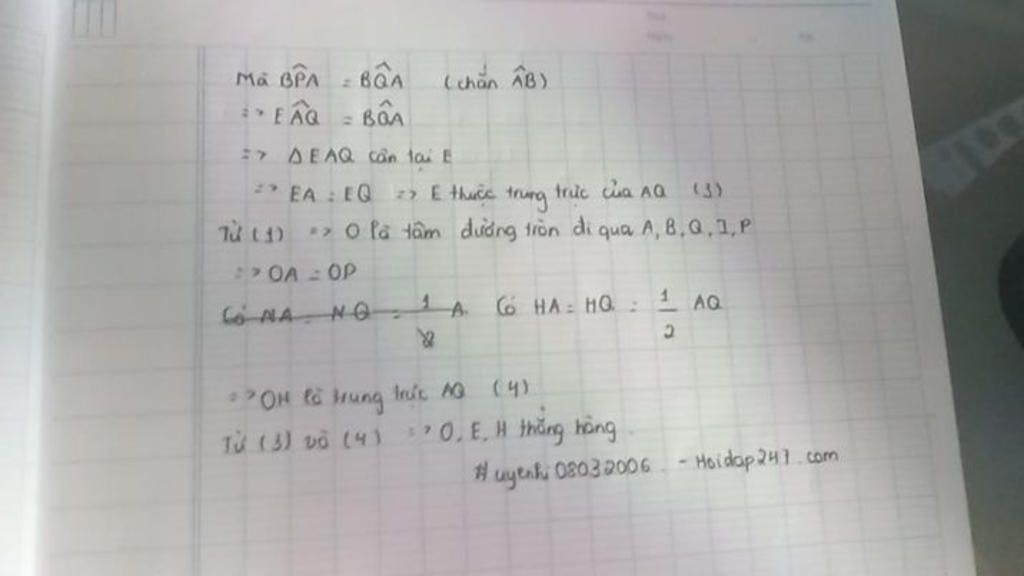 Mà BP̂A = BQ̂A (chắn ÂB)
=> EÂQ = BQ̂A
=> ΔEAQ cân tại E
=> EA = EQ => E thuộc trung trực của AQ (3)
Từ (1) => O là tâm đường tròn đi qua A, B, Q, I, P
=> OA = OP
Có HA = HQ = 1/2 AQ
=> OH là trung trực AQ (4)
Từ (3) và (4) => O, E, H thẳng hàng.
Huyenhi08032006 - Hoidap247.com